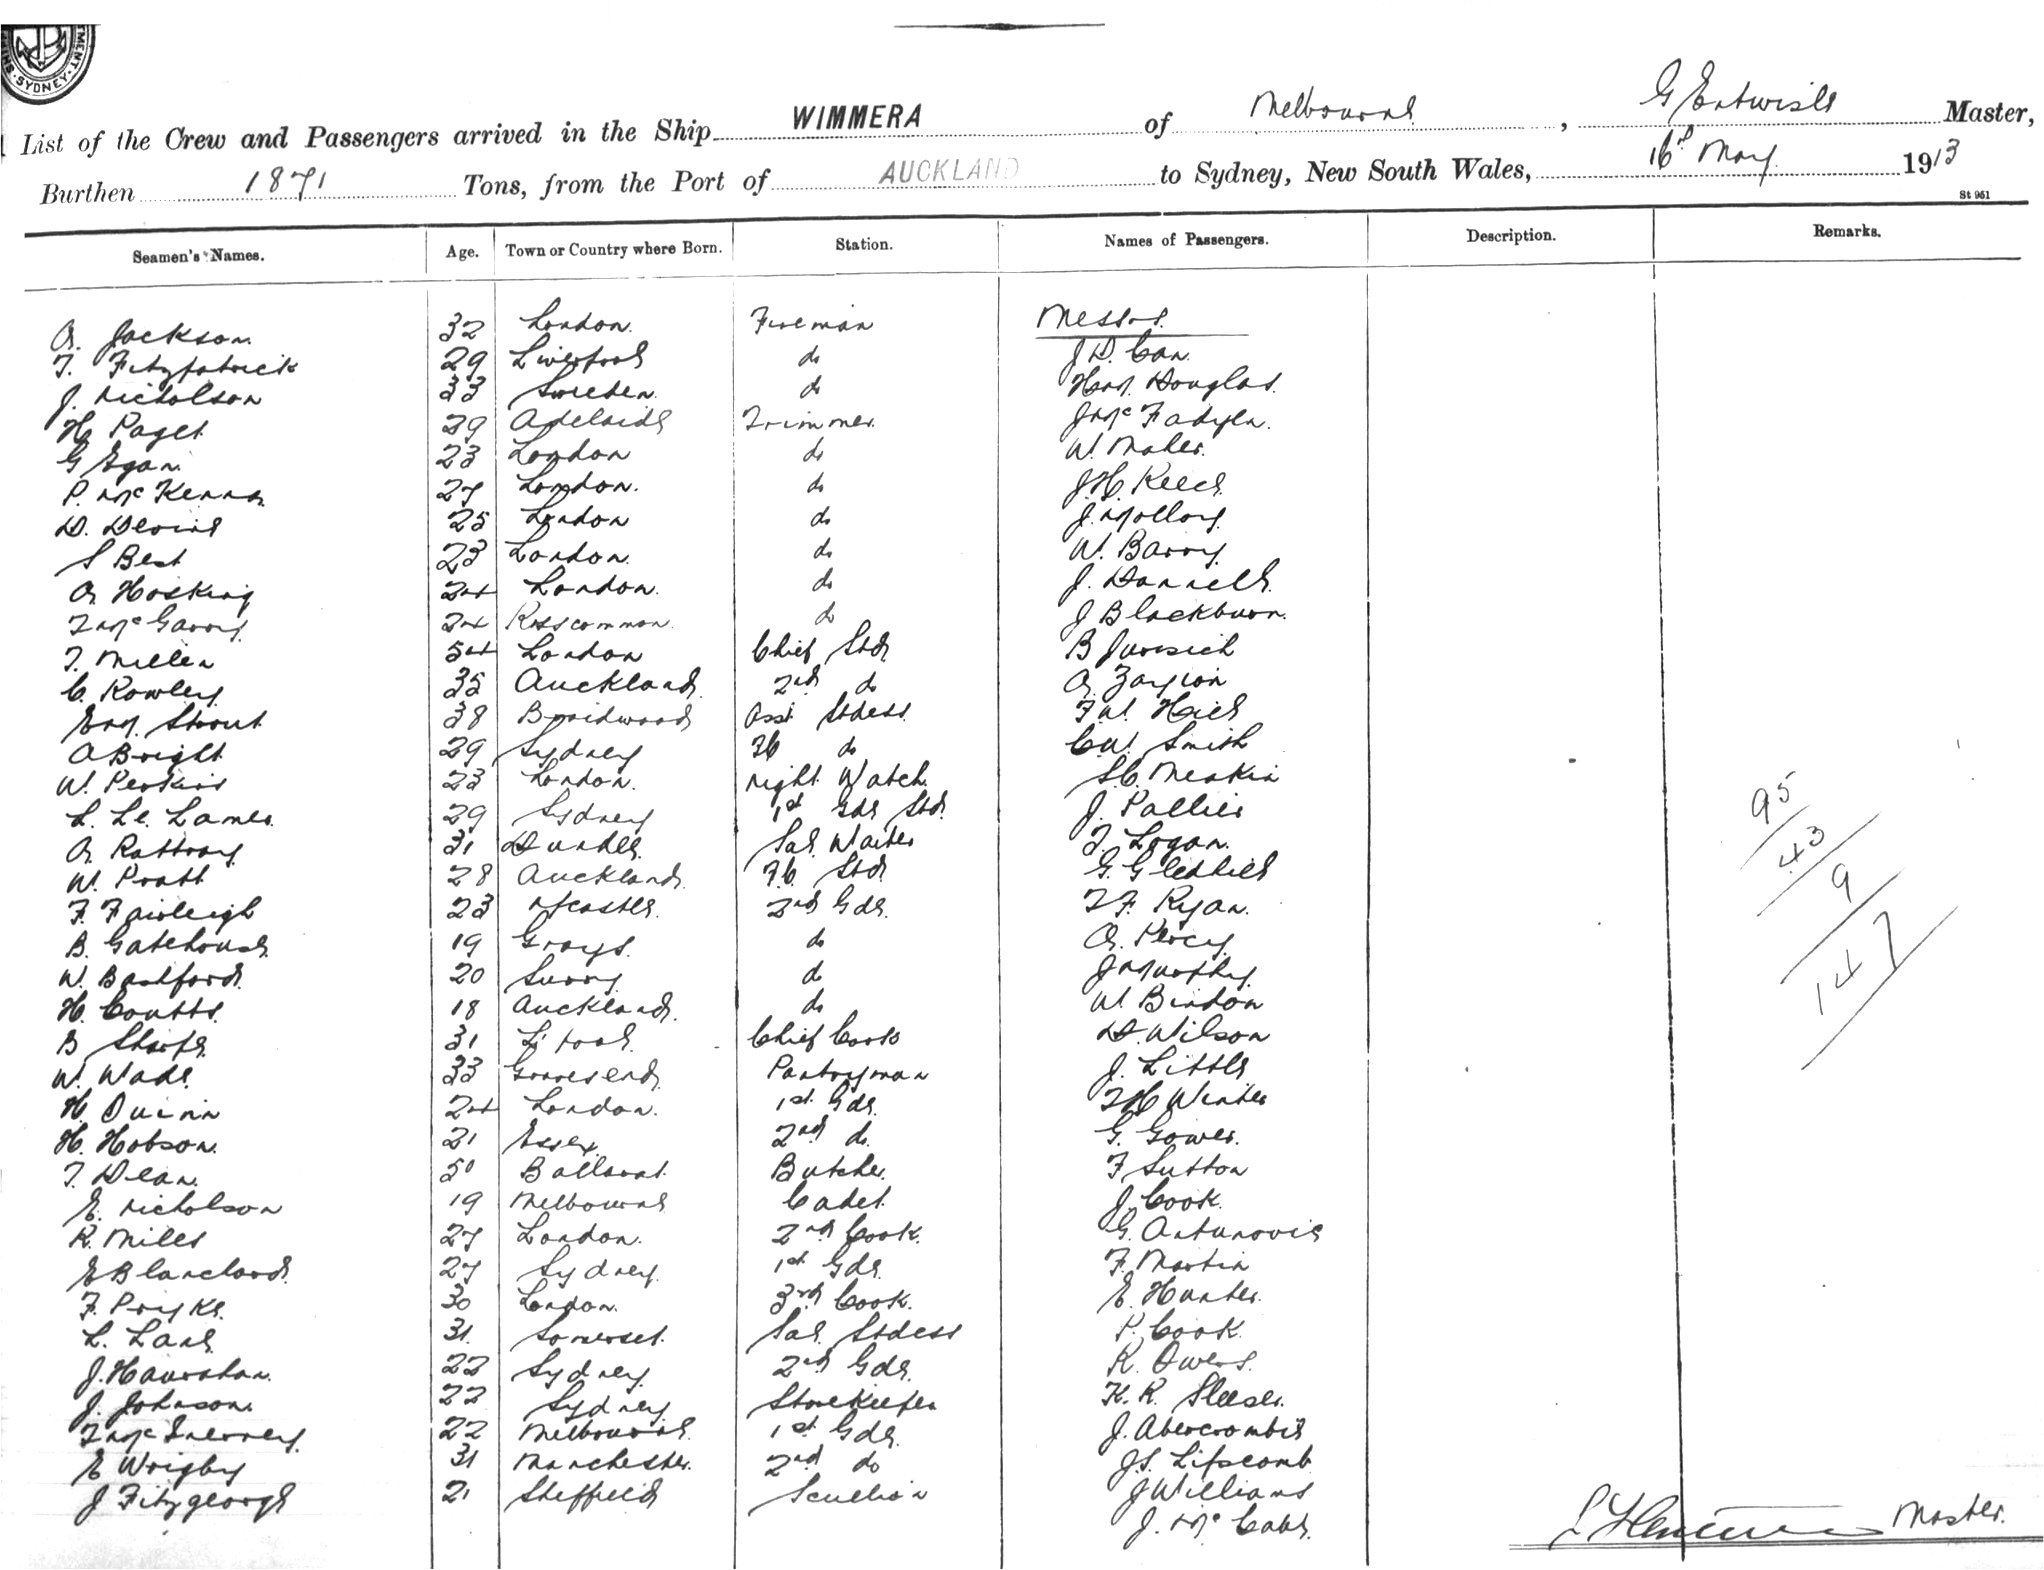 SYDNEY
List of the Crew and Passengers arrived in the Ship WIMMERA of Melbourne, G Entwisle Master,
Burthen 1871 Tons, from the Port of AUCKLAND to Sydney, New South Wales, 16 May 1913
St 961
Seamen's Names. Age. Town or Country where Born. Station. Names of Passengers. Description. Remarks.
A. Jackson 32 London Fireman Messrs.
T. Fitzpatrick 29 Liverpool do J D.
J. Nicholson 33 Sweden do Hny. Douglas
H. Paget 29 Adelaide Trimmer J McFadyen
G Egan 23 London do W. Maher
P. McKenna 27 London do J. H. Keech
D. Devine 25 London do J. Molloy
S Best 23 London do W. Barry
A Hosking 24 London do J. Darrell
T McGarry 24 Roscommon do J Blackburn
T. Miller 54 London Chief Std B Juresich
C. Rowley 35 Auckland 2nd do A.
Strout 38 Braidwood Asst Stdess F W.
A Bright 29 Sydney FC do C W. Smith
W. Perkins 23 London Night Watch S. C. Meakin
L. Le. Lamer 29 Sydney 1st Gde Std J. Pallier
A. Rattray 31 Dundee Sal. Waiter T. Logan
W. Pratt 28 Auckland F.C. Std G. Gledhill
F. Fairleigh 23 Ncastle 2nd Gde T F. Ryan
B. Gatehouse 19 Grays do A. Percy
W. Bashford 20 Surry do J Murphy
H. Coutts 18 Auckland do W Bindon
B Sharpe 31 L'pool Chief Cook D. Wilson
W. Wade 33 Gravesend Pantryman J. Little
H. Quinn 24 London 1st Gde T H Winter
H. Hobson 21 Essex 2nd do G. Gower
T. Dean 50 Ballarat Butcher F Sutton
E. Nicholson 19 Melbourne Cadet J. Cook
R. Miles 27 London 2nd Cook G. Antunovic
E Blanchard 27 Sydney 1st Gde F. Martin
F. Pryke 30 London 3rd Cook E. Hunter
L. Lane 31 Somerset Sal. Stdess P. Cook
J. Hanrahan 22 Sydney 2nd Gde R. Owers
J. Johnson 22 Sydney Storekeeper K. R. Sleeser
T McInerney 22 Melbourne 1st Gde J. Abercrombie
E Wrigby 31 Manchester 2nd do J S. Lipscomb
J Fitzgeorge 21 Sheffield Scullion J Williams
J. McCabe
95
43
9
147
Master.